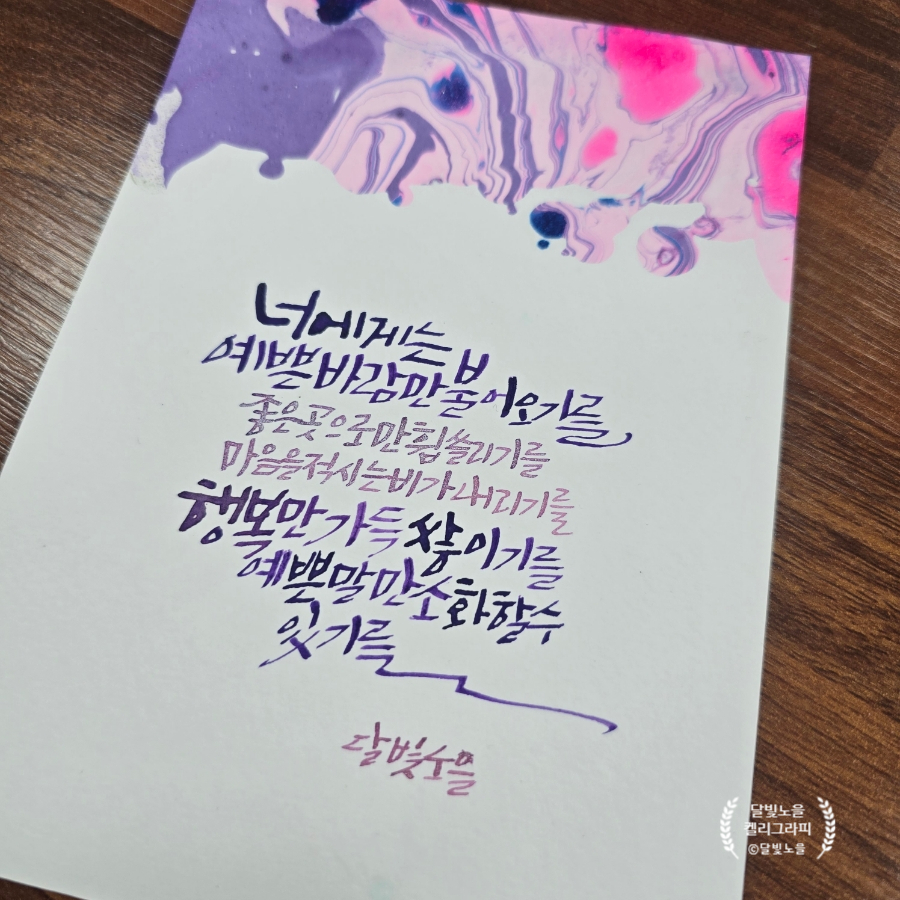 너에게는
예쁜 바람만 불어오기를
좋은 곳으로만 휩쓸리기를
마음을 적시는 비가 내리기를
행복만 가득 쌓이기를
예쁜 말만 소화할 수
있기를
달빛노을
달빛노을
켈리그라피
©달빛노을